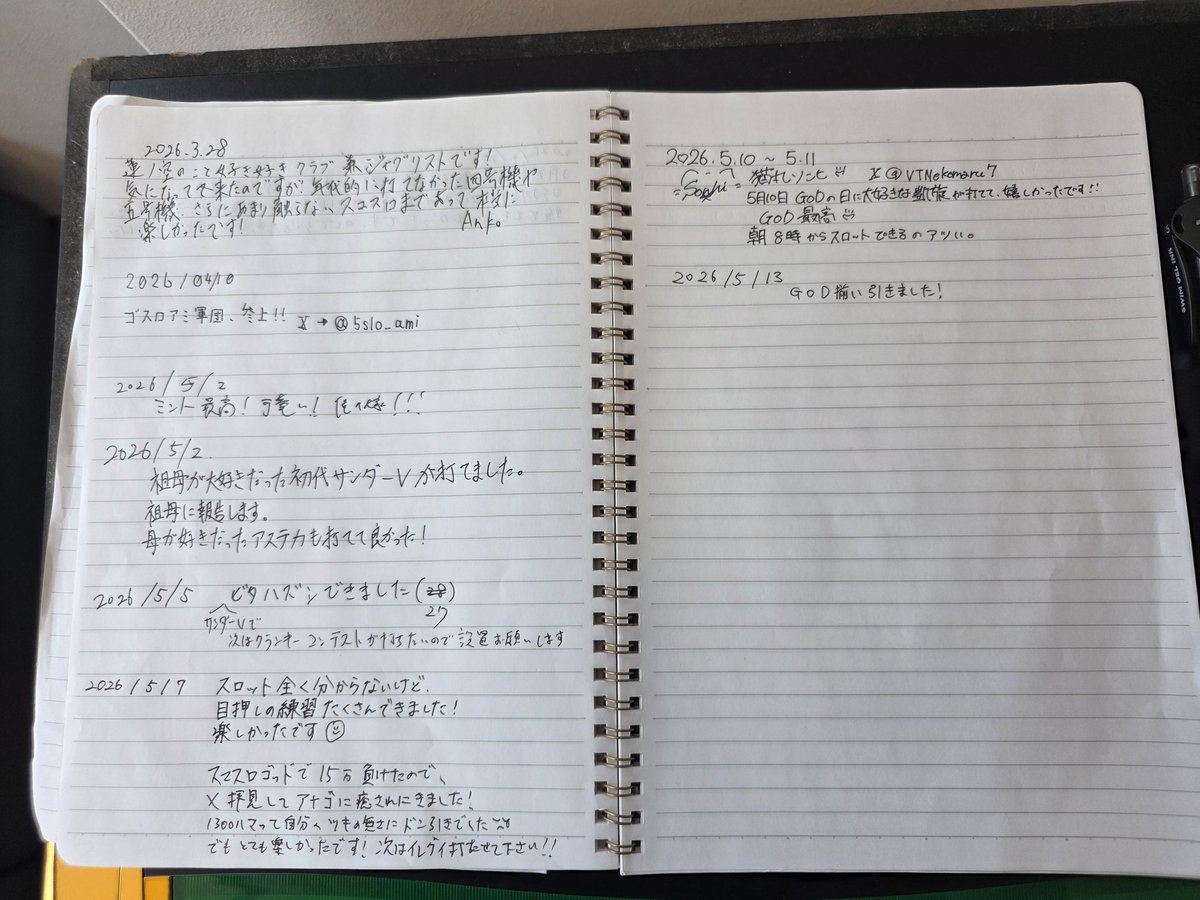 2026.3.28
蓮ノ空のこと好き好きクラブ 兼ジャグリストです!
気になって来たのですが、気代的に打てなかった四号機や
五号機、さらにあまり触らないスマスロまであって本当に
楽しかったです! Anko
2026/04/10
ゴスロアミ軍団、参上!! X→@5slo_ami
2026/5/2
ミント最高!可愛い!
2026/5/2.
祖母が大好きだった初代サンダーVが打てました。
祖母に報告します。
母が好きだったアステカも打てて良かった!
2026/5/5 ビタハズシできました(28)
サンダーVで 27
次はクランキーコンテストが打ちたいので設置お願いします
2026/5/7 スロット全く分からないけど、
目押しの練習たくさんできました!
楽しかったです
スマスロゴッドで15万負けたので、
X拝見してアナゴに癒されにきました!
1300ハマって自分のツキの無さにドン引きでした
でもとても楽しかったです!次はイレグイ打たせて下さい!!
2026.5.10 ~ 5.11
Sophi 猫丸ソンヒ X @VTNekomaru7
5月10日 GODの日に大好きな凱旋が打てて、嬉しかったです!!
GOD最高
朝8時からスロットできるのアツい。
2026/5/13
GOD揃い引きました!
SWIM GEL-INK